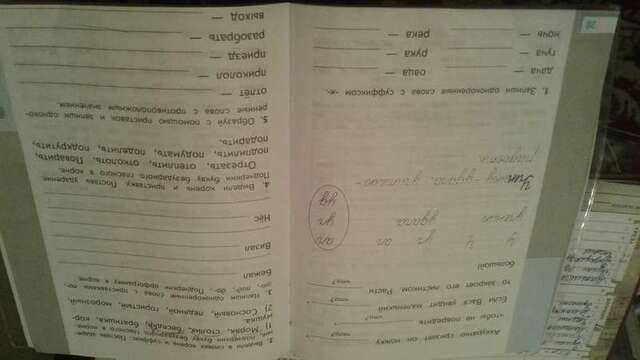 Аккуратно срезает он ножку
чего?
чтобы не повредить
что?
Если Вася увидит маленький
то закроет его листиком. Расти
что?
большой!
У Ч уч ан
ан
ученик удача
уч
уд
Ученику - удача, учителю -
радость.
1. Запиши однокоренные слова с суффиксом -к-.
дача — овца —
туча — рука —
ночь — река —
28
2. Выдели в словах корень и суффикс. Поставь ударе-
ния, подчеркни букву безударного гласного в корне.
1) Моряк, столик, беседка, братишка, кор-
мушка.
2) Сосновый, ледяной, гористый, морозный.
3. Напиши однокоренные слова с приставками по-,
под-, до-. Подчеркни орфограмму в корне.
Бежал
Вязал
Нёс
4. Выдели корень и приставку. Поставь ударение.
Подчеркни букву безударного гласного в корне.
Отрезать, отеплить, отколоть. Поварить,
подпилить, подумать, поделить, подкрутить,
подарить.
5. Образуй с помощью приставок и запиши одноко-
ренные слова с противоположным значением.
отлёт —
приколол —
приезд —
разобрать —
выход —